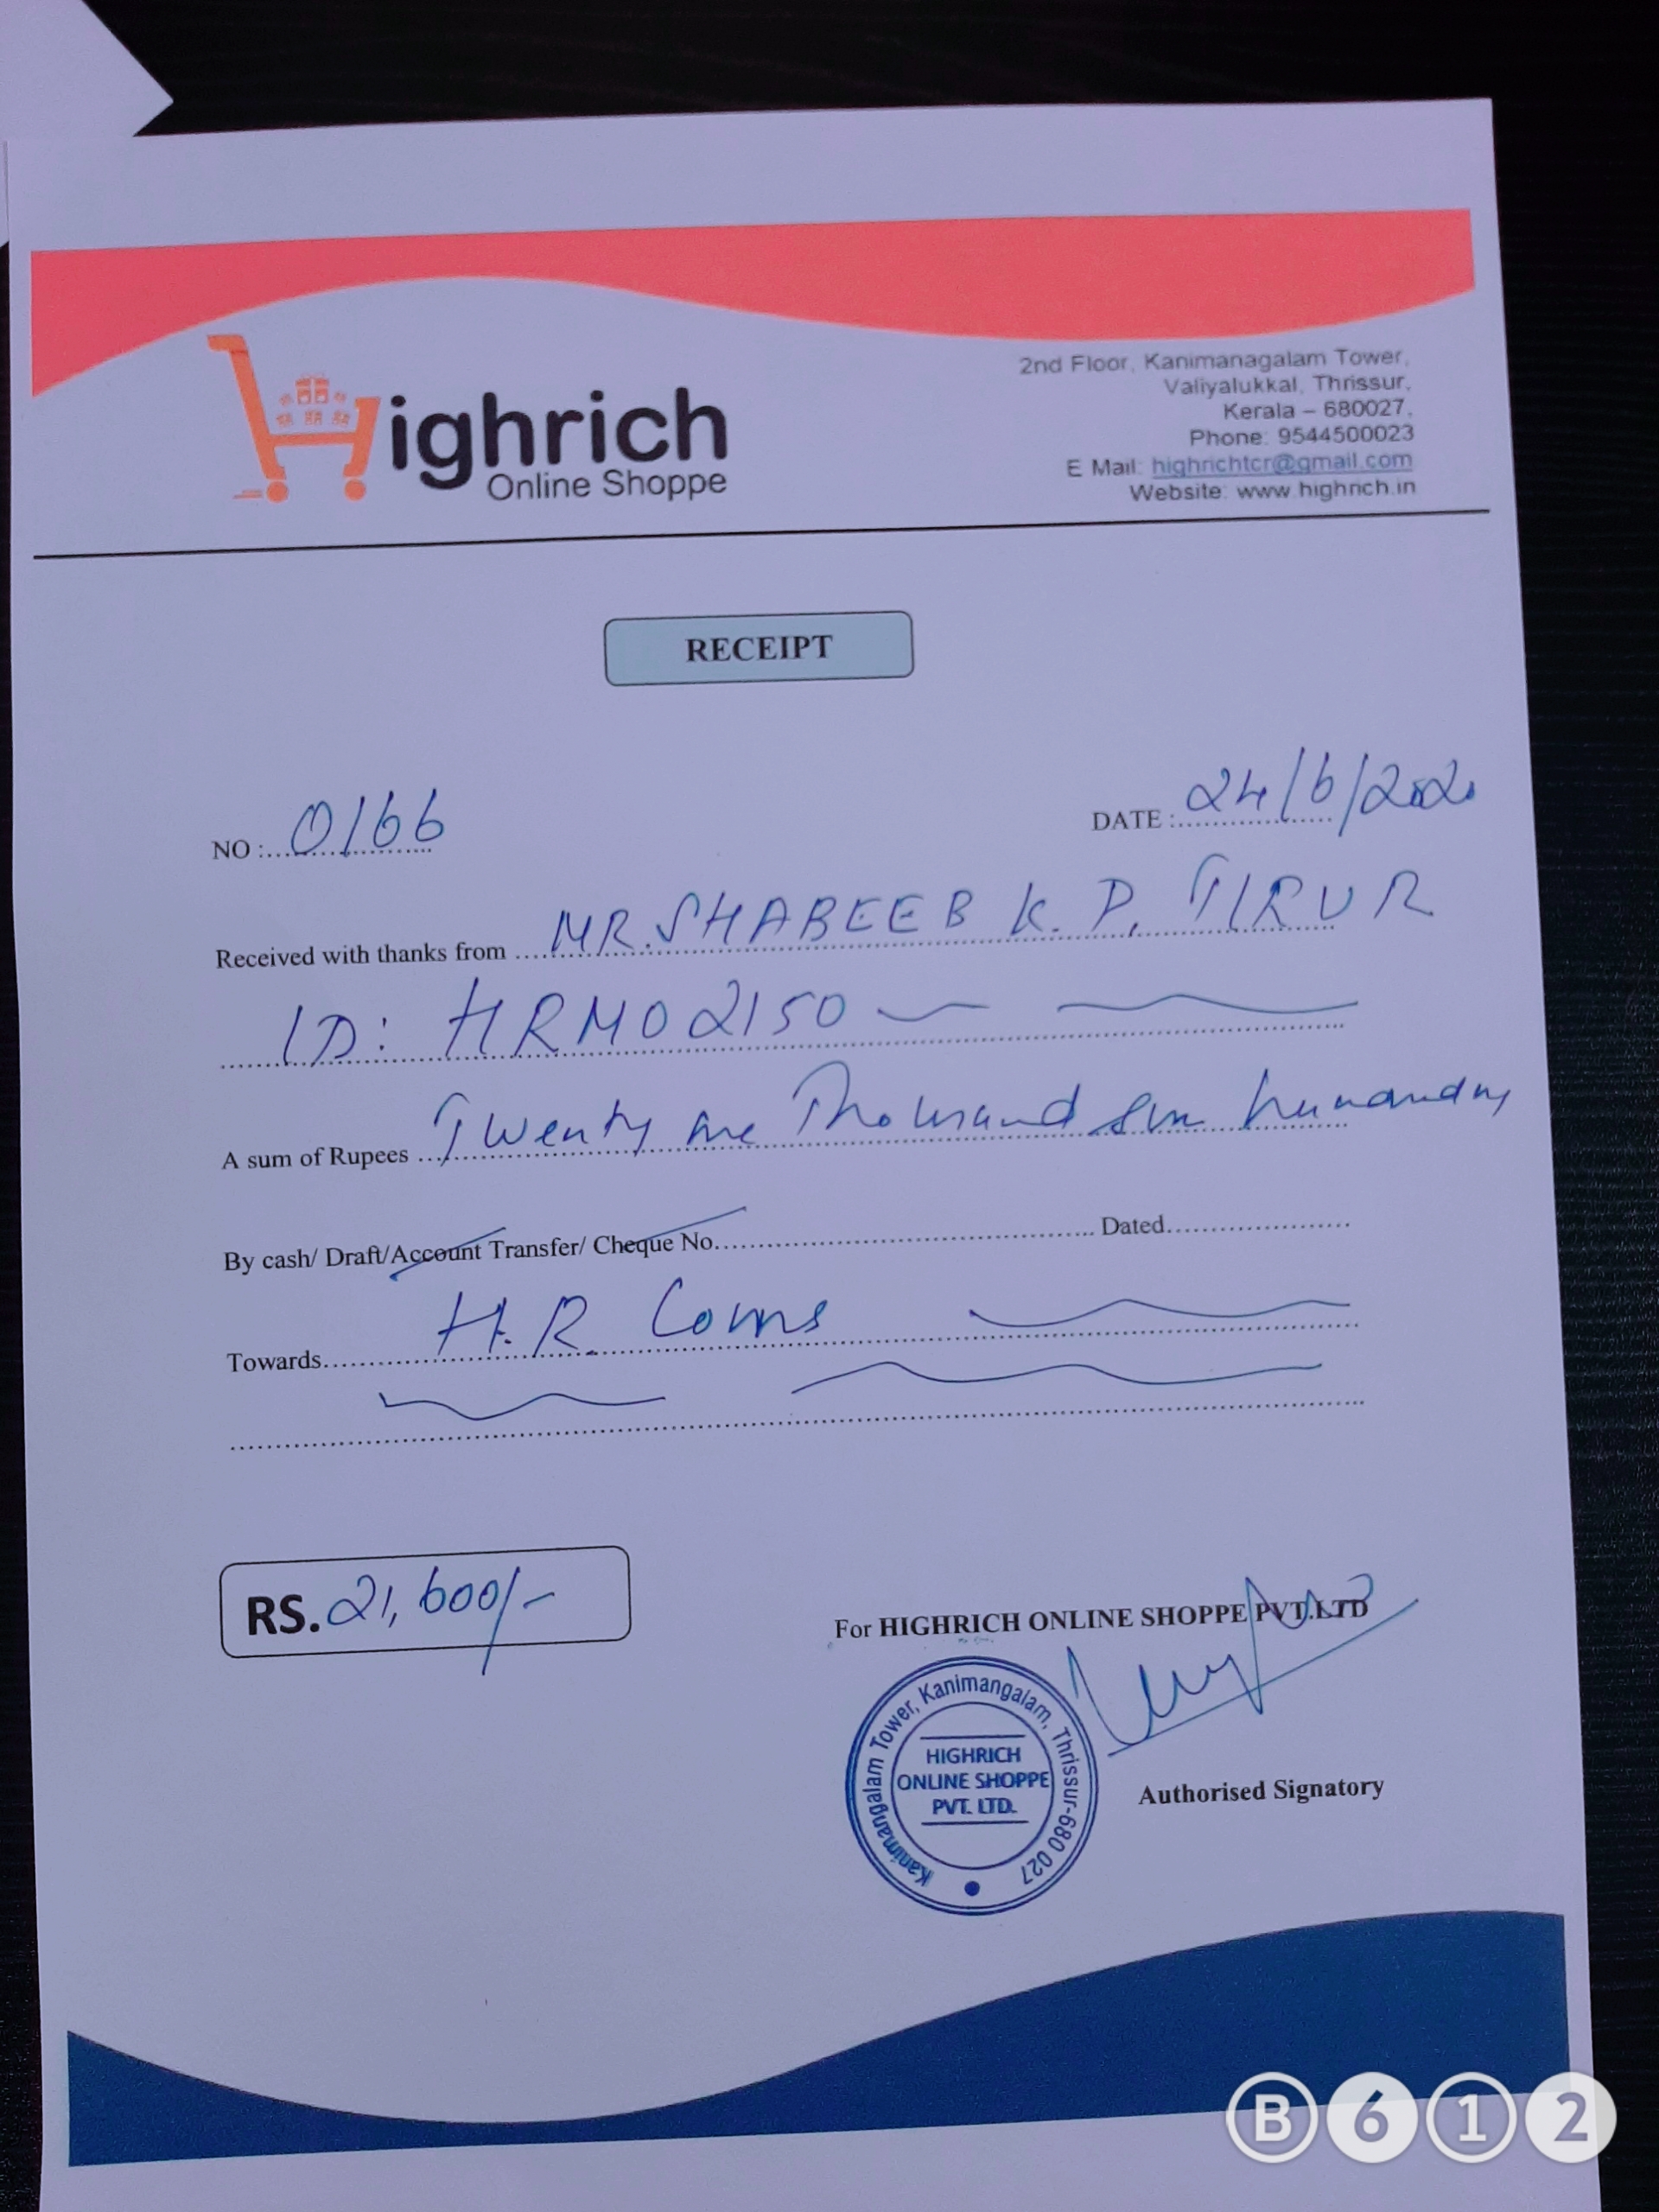 Highrich
Online Shoppe
2nd Floor, Kanimanagalam Tower,
Valiyalukkal, Thrissur,
Kerala – 680027,
Phone: 9544500023
E Mail: highrichtcr@gmail.com
Website: www.highrich.in
RECEIPT
NO :....0166
DATE :....24/6/2020
Received with thanks from ....MR. SHABEEB K. P, TIRUR
ID: HRM02150
A sum of Rupees ....Twenty one Thousand Six
By cash/ Draft/Account Transfer/ Cheque No.................... Dated....................
Towards....H.R. Coins
RS. 21,600/-
For HIGHRICH ONLINE SHOPPE PVT.LTD
Kanimangalam Tower, Kanimangalam, Thrissur-680 027
HIGHRICH
ONLINE SHOPPE
PVT. LTD.
Authorised Signatory
B612